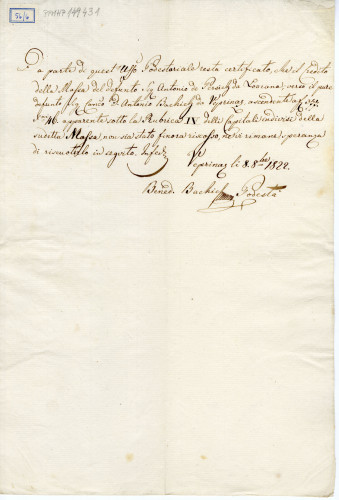 54/6
Da parte di quest' Uff.o Podestariale resta certificato, che il Credito
della Massa del defunto Sig Antonio de Persich da Lovrana, verso il pure
defunto Sig Canco D. Antonio Bachich da Veprinaz ascendente a
46 apparente sotto la Rubrica IX delli Capitali indivisi della
sudetta Massa, non sia stato finora riscosso, ne vi rimane speranza
di riscuoterlo in seguito. In fede
Veprinaz li 8. 8bre 1822.
Bened. Bachich Podestà